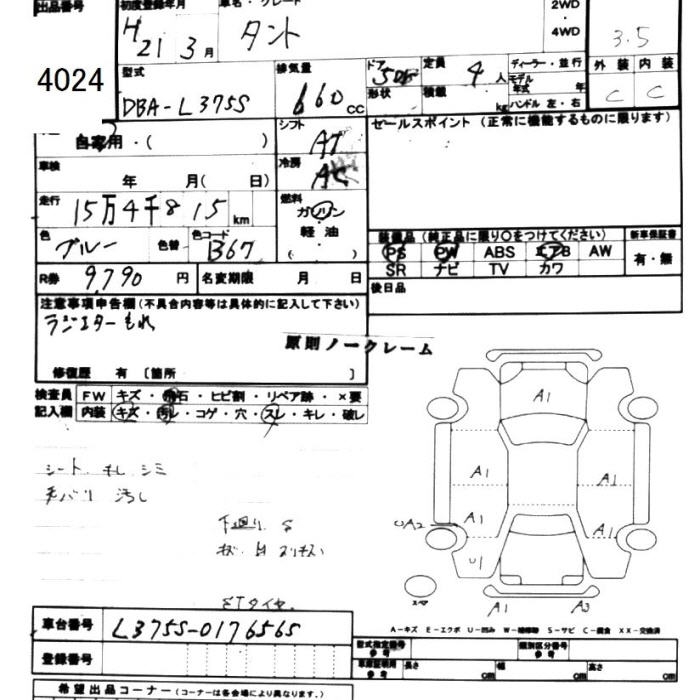 出品番号 初度登録年月 車名・グレード 2WD
・
4WD
H 21 3月 タント 3.5
4024
型式 排気量 ドア 定員 ディーラー・並行 外装 内装
DBA-L375S 660 CC 5DR 形状 4人 積載 kg モデル年式 年 ハンドル 左・右 C C
自家用・( ) シフト AT セールスポイント (正常に機能するものに限ります)
車検 年 月( 日) 冷房 AC
走行 15万4千815 km 燃料 ガソリン
軽油
( )
色 ブルー 色替 色コード B67
装備品 (純正品に限り○をつけてください) 新車保証書
PS PW ABS エアB AW 有・無
SR ナビ TV カワ
R券 9,790円 名変期限 月 日 後日品
注意事項申告欄 (不具合内容等は具体的に記入して下さい)
ラジエターもれ
原則ノークレーム
修復歴 有 〔箇所 〕
検査員 FW キズ・飛石・ヒビ割・リペア跡・×要
記入欄 内装 キズ・汚レ・コゲ・穴・スレ・キレ・破レ
シート シミ
汚し
下廻り S
STタイヤ
A1
A1 A1
UA2 A1 A1
U1
スペア A1 A3
A-キズ E-エクボ U-凹み W-補修跡 S-サビ C-腐食 XX-交換済
車台番号 L375S-0176565
型式指定番号 参考 類別区分番号 参考
登録番号 車庫証明用 参考 長さ cm 幅 cm 高さ cm
希望出品コーナー (コーナーは各会場により異なります。)